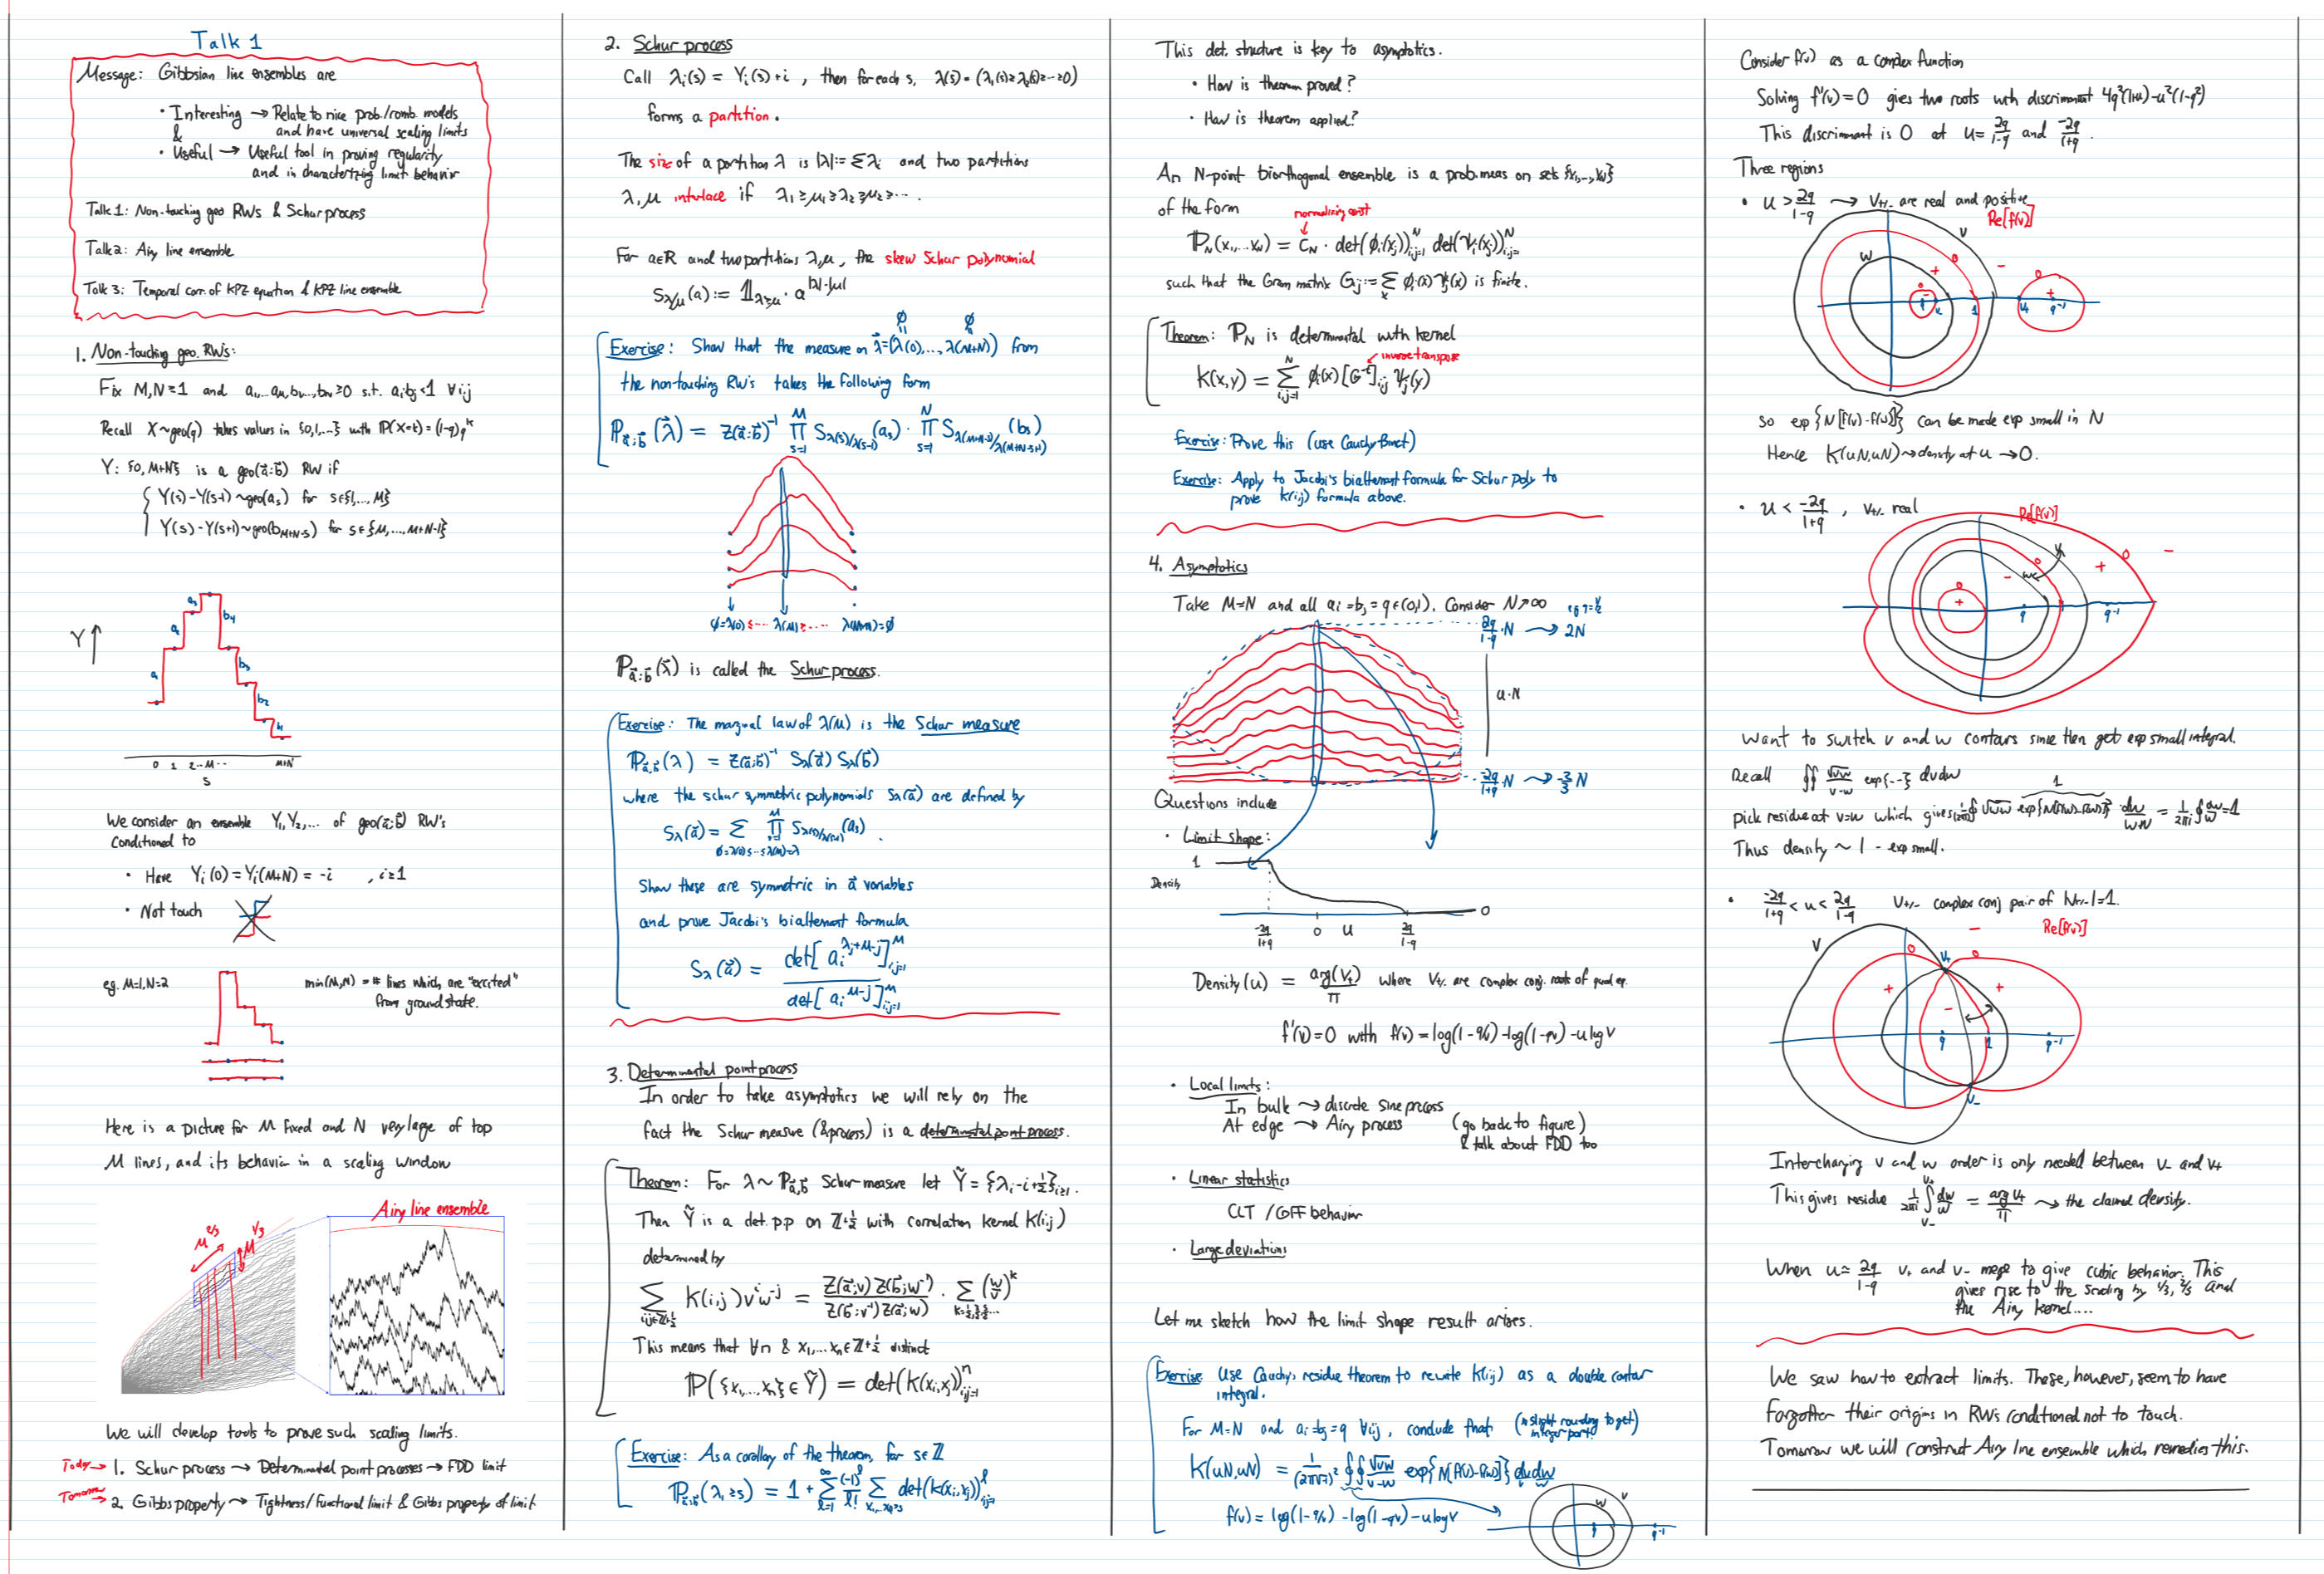 Talk 1
Message: Gibbsian line ensembles are
• Interesting → Relate to nice prob./comb. models
& and have universal scaling limits
• Useful → Useful tool in proving regularity
and in charactertzing limit behavior
Talk 1: Non-touching geo RWs & Schur process
Talk 2: Airy line ensemble
Talk 3: Temporal corr. of KPZ equation & KPZ line ensemble
1. Non-touching geo. RWs:
Fix M,N≥1 and a₁,...,a_M, b₁,...,b_N ≥0 s.t. a_i b_j <1 ∀i,j
Recall X~geo(q) takes values in {0,1,...} with P(X=k) = (1-q)q^k
Y: {0, M+N} is a geo(a⃗;b⃗) RW if
Y(s)-Y(s-1) ~geo(a_s) for s∈{1,...,M}
Y(s)-Y(s+1)~geo(b_{M+N-s}) for s∈{M,...,M+N-1}
Y ↑
a₁ a₂ a₃ b₄ b₃ b₂ b₁
0 1 2 ... M ... M+N
s
We consider an ensemble Y₁,Y₂,... of geo(a⃗;b⃗) RW's
conditioned to
• Have Y_i(0) = Y_i(M+N) = -i , i≥1
• Not touch
eg. M=1, N=2
min(M,N) = # lines which are "excited"
from ground state.
Here is a picture for M fixed and N very large of top
M lines, and its behavior in a scaling window
Airy line ensemble
M^{2/3} M^{1/3}
We will develop tools to prove such scaling limits.
Today → 1. Schur process → Determinantal point processes → FDD limit
Tomorrow → 2. Gibbs property → Tightness/functional limit & Gibbs property of limit
2. Schur process
Call λ_i(s) = Y_i(s)+i , then for each s, λ(s) = (λ₁(s)≥λ₂(s)≥...≥0)
forms a partition.
The size of a partition λ is |λ| := Σλ_i and two partitions
λ,μ interlace if λ₁ ≥ μ₁ ≥ λ₂ ≥ μ₂ ≥ ....
For a∈R and two partitions λ,μ, the skew Schur polynomial
S_{λ/μ}(a) := 1_{λ≽μ} · a^{|λ|-|μ|}
∅ ∅
Exercise: Show that the measure on λ⃗ = (λ(0),...,λ(M+N)) from
the non-touching RW's takes the following form
P_{a⃗;b⃗}(λ⃗) = Z(a⃗;b⃗)^{-1} ∏_{s=1}^{M} S_{λ(s)/λ(s-1)}(a_s) · ∏_{s=1}^{N} S_{λ(M+N-s)/λ(M+N-s+1)}(b_s)
∅=λ(0)≤... λ(M)≥.... λ(M+N)=∅
P_{a⃗;b⃗}(λ) is called the Schur process.
Exercise: The marginal law of λ(M) is the Schur measure
P_{a⃗;b⃗}(λ) = Z(a⃗;b⃗)^{-1} S_λ(a⃗) S_λ(b⃗)
where the schur symmetric polynomials S_λ(a⃗) are defined by
S_λ(a⃗) = Σ_{∅=λ(0)≤...≤λ(M)=λ} ∏_{s=1}^{M} S_{λ(s)/λ(s-1)}(a_s).
Show these are symmetric in a⃗ variables
and prove Jacobi's bialternant formula
S_λ(a⃗) = det[a_i^{λ_j+M-j}]_{i,j=1}^M / det[a_i^{M-j}]_{i,j=1}^M
3. Determinantal point process
In order to take asymptotics we will rely on the
fact the Schur measure (& process) is a determinantal point process.
Theorem: For λ ~ P_{a⃗;b⃗} Schur measure let Ỹ = {λ_i - i + 1/2}_{i≥1}.
Then Ỹ is a det. p.p on Z+1/2 with correlation kernel K(i,j)
determined by
Σ_{i,j∈Z+1/2} K(i,j) v^i w^{-j} = Z(a⃗;v) Z(b⃗;w^{-1}) / Z(b⃗;v^{-1}) Z(a⃗;w) · Σ_{k=1/2,3/2,5/2...} (w/v)^k
This means that ∀n & x₁,...,x_n∈Z+1/2 distinct
P({x₁,...,x_n} ∈ Ỹ) = det(K(x_i,x_j))_{i,j=1}^n
Exercise: As a corollary of the theorem, for s∈Z
P_{a⃗;b⃗}(λ₁≥s) = 1 + Σ_{ℓ=1}^∞ (-1)^ℓ/ℓ! Σ_{x₁,...,x_ℓ>s} det(K(x_i,x_j))_{i,j=1}^ℓ
This det. structure is key to asymptotics.
• How is theorem proved?
• How is theorem applied?
An N-point biorthogonal ensemble is a prob. meas on sets {x₁,...,x_N}
of the form
normalizing const
P_N(x₁,...,x_N) = C_N · det(φ_i(x_j))_{i,j=1}^N det(ψ_i(x_j))_{i,j=1}^N
such that the Gram matrix G_ij := Σ_x φ_i(x) ψ_j(x) is finite.
Theorem: P_N is determinantal with kernel
inverse transpose
K(x,y) = Σ_{i,j=1}^N φ_i(x) [G^{-t}]_{ij} ψ_j(y)
Exercise: Prove this (use Cauchy Binet)
Exercise: Apply to Jacobi's bialternant formula for Schur poly to
prove K(i,j) formula above.
4. Asymptotics
Take M=N and all a_i = b_j = q∈(0,1). Consider N↗∞ eg q=1/2
2q/(1-q)·N → 2N
u·N
-2q/(1+q)·N → -2/3 N
Questions include
• Limit shape:
1
Density
0
-2q/(1+q) 0 u 2q/(1-q)
Density(u) = arg(V₊)/π where V₊/₋ are complex conj. roots of quad eq.
f'(v)=0 with f(v) = log(1-q/v) - log(1-qv) - u log v
• Local limits:
In bulk → discrete sine process
At edge → Airy process (go back to figure)
& talk about FDD too
• Linear statistics
CLT / GFF behavior
• Large deviations
Let me sketch how the limit shape result arises.
Exercise Use Cauchy's residue theorem to rewrite K(i,j) as a double contour
integral.
For M=N and a_i=b_j=q ∀i,j, conclude that (slight rounding to get integer part)
K(uN,uN) = 1/(2π√-1)² ∮∮ √vw/(v-w) exp{N[f(v)-f(w)]} dv/v dw/w
f(v) = log(1-q/v) - log(1-qv) - u log v
w v q q⁻¹
Consider f(v) as a complex function
Solving f'(v)=0 gies two roots with discriminant 4q²(1+u)-u²(1-q²)
This discriminant is 0 at u= 2q/(1-q) and -2q/(1+q).
Three regions
• u > 2q/(1-q) → V₊/₋ are real and positive
Re[f(v)]
w v q 1 u q⁻¹
So exp{N[f(v)-f(w)]} can be made exp small in N
Hence K(uN,uN)→density at u → 0.
• u < -2q/(1+q) , V₊/₋ real
Re[f(v)]
v w q q⁻¹
Want to switch v and w contours since then get exp small integral.
Recall ∮∮ √vw/(v-w) exp{...} dvdw
1
pick residue at v=w which gives 1/(2πi)∮ √vw exp{N[f(w)-f(w)]} dw/(w·w) = 1/(2πi)∮dw/w = 1
Thus density ~ 1 - exp small.
• -2q/(1+q) < u < 2q/(1-q) V₊/₋ complex conj pair of |V₊/₋|=1.
Re[f(v)]
v V₊ q 1 q⁻¹ V₋
Interchanging v and w order is only needed between V₋ and V₊
This gives residue 1/(2πi) ∫_{V₋}^{V₊} dw/w = arg V₊/π → the claimed density.
When u≃ 2q/(1-q) V₊ and V₋ merge to give cubic behavior. This
gives rise to the scaling by 1/3, 2/3 and
the Airy kernel....
We saw how to extract limits. These, however, seem to have
forgotten their origins in RWs conditioned not to touch.
Tomorrow we will construct Airy line ensemble which remedies this.